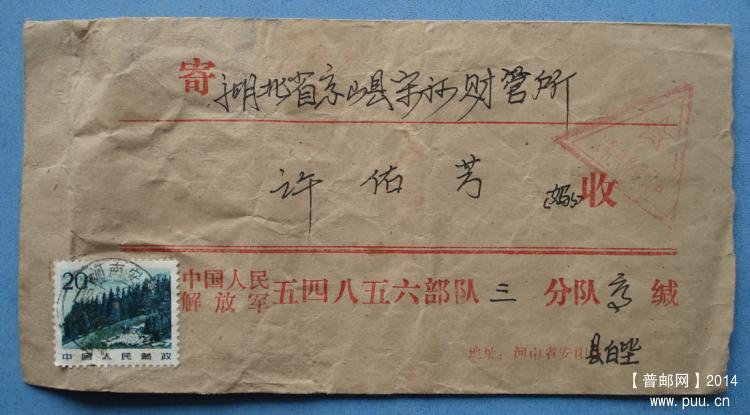 寄 湖北省京山县宋河财管所
许佑芳 (妈) 收
中国人民解放军 五四八五六部队 三 分队 高 缄
地址：河南省安阳县白壁
20
河南安
中国人民邮政
【普邮网】2014
www.puu.cn